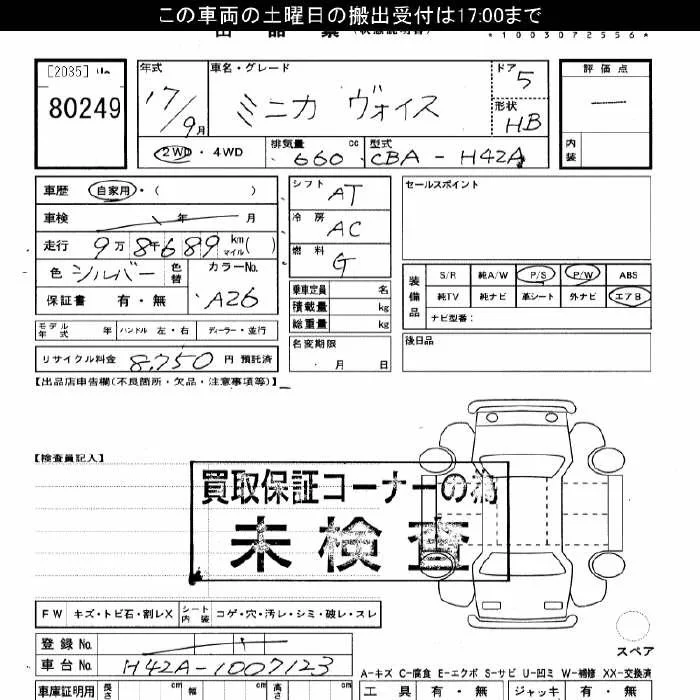 この車両の土曜日の搬出受付は17:00まで
*1003072556*
[2035]
80249
年式 車名・グレード ドア 評価点
17/9月 ミニカ ヴォイス 5
形状
HB
内装
2WD・4WD 排気量 cc 型式
660 CBA-H42A
車歴 自家用・( )
車検 年 月
走行 9万8千689km マイル( )
色 シルバー 色替 カラーNo.
保証書 有・無 A26
モデル年式 年 ハンドル 左・右 ディーラー・並行
リサイクル料金 8,750 円 預託済
シフト AT
冷房 AC
燃料 G
乗車定員 名
積載量 kg
総重量 kg
名変期限
月 日
セールスポイント
装備品
S/R 純A/W P/S P/W ABS
純TV 純ナビ 革シート 外ナビ エアB
ナビ型番:
後日品
【出品店申告欄(不良箇所・欠品・注意事項等)】
【検査員記入】
買取保証コーナーの為
未検査
FW キズ・トビ石・割レX シート内装 コゲ・穴・汚レ・シミ・破レ・スレ
登録No.
車台No. H42A-1007123
スペア
A-キズ C-腐食 E-エクボ S-サビ U-凹ミ W-補修 XX-交換済
車庫証明用 長さ cm 幅 cm 高さ cm
工具 有・無 ジャッキ 有・無